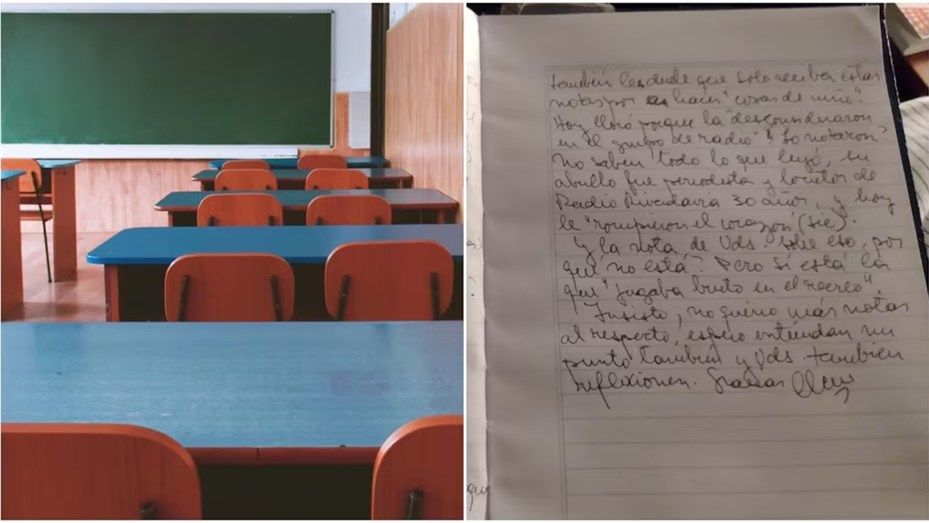 también les duele que solo reciba estas
notas por hacer "cosas de niño".
Hoy lloró porque la "descoordinaron
en el grupo de radio" ¿Lo notaron?
No saben todo lo que leyó, su
abuelo fue periodista y locutor de
Radio Rivadavia 30 años, y hoy
le "rompieron el corazón" (sic).
Y la nota de Uds. sobre eso, por
que no está? Pero sí está la
que "jugaba bruto en el recreo".
Insisto, no quiero más notas
al respecto, espero entiendan mi
punto también y Uds también
reflexionen. Gracias